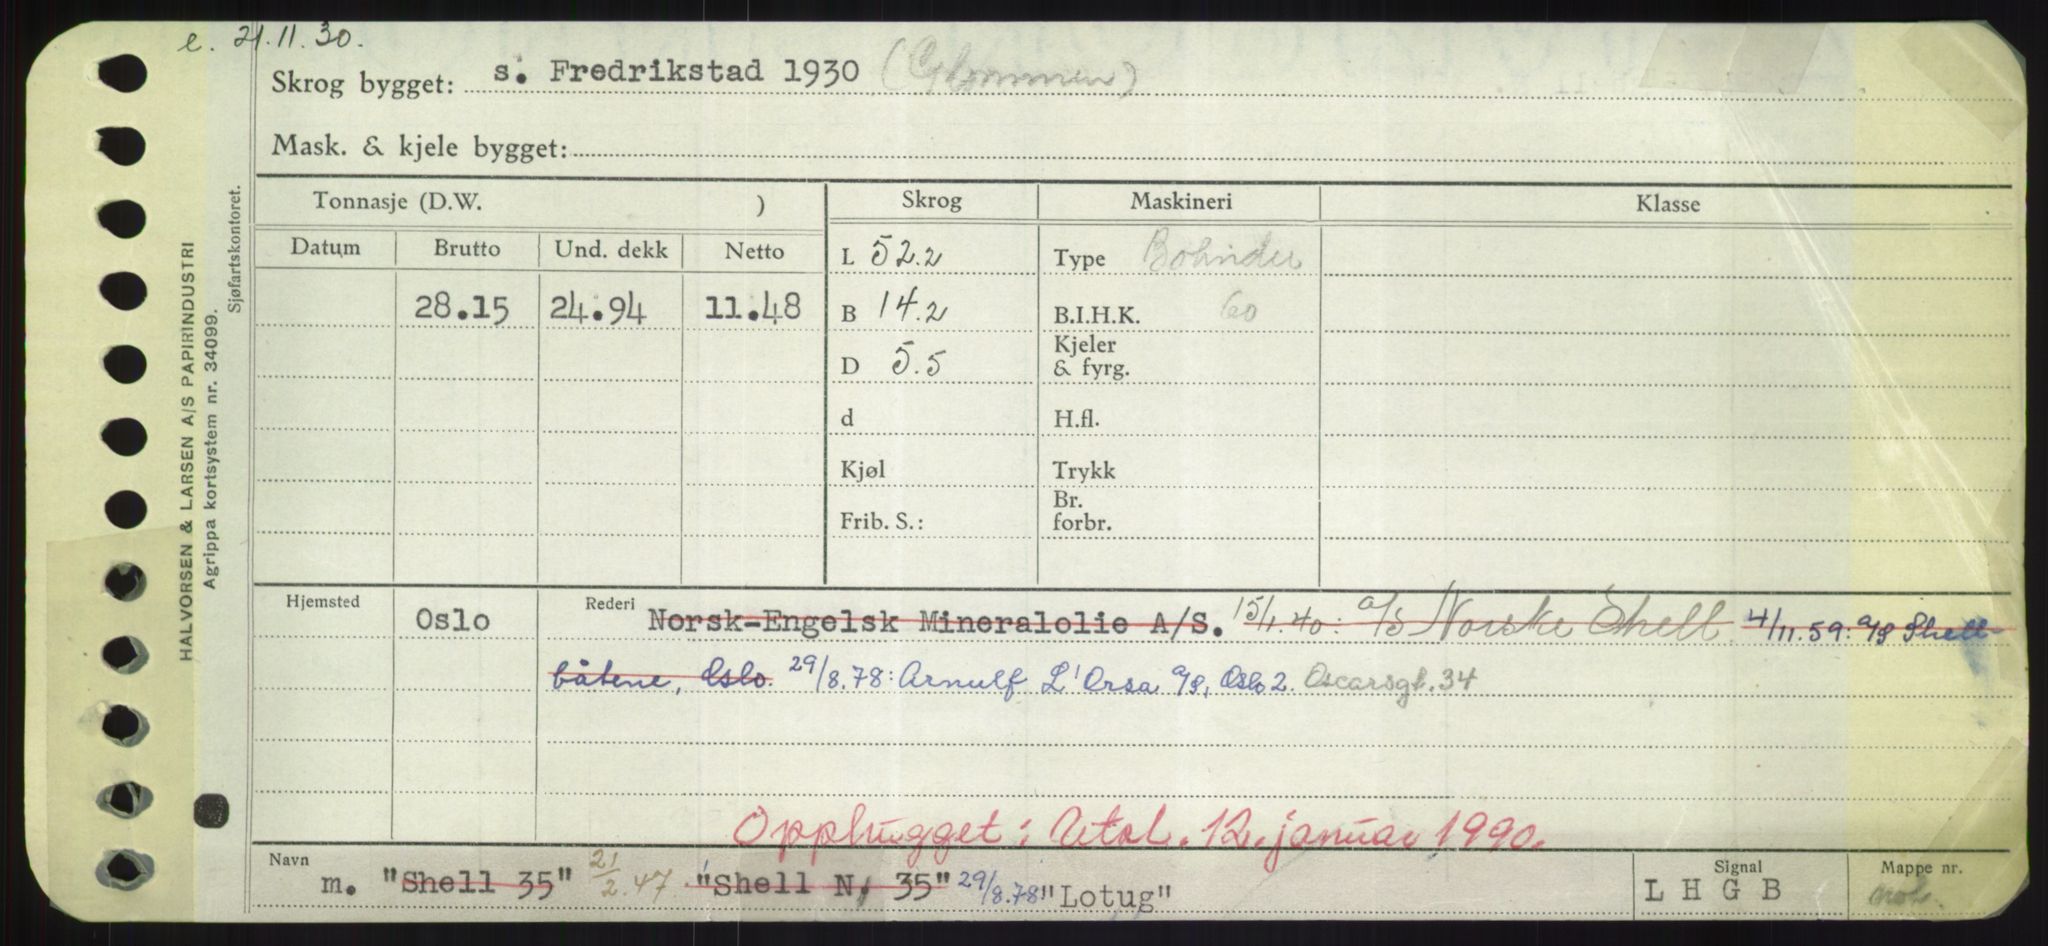 e. 21.11.30.
Skrog bygget: s. Fredrikstad 1930 (Glommen)
Mask. & kjele bygget:
HALVORSEN & LARSEN A/S PAPIRINDUSTRI
Agrippa kortsystem nr. 34099.
Sjøfartskontoret.
Tonnasje (D.W. ) Skrog Maskineri Klasse
Datum Brutto Und. dekk Netto
L 52.2 Type Bolinder
28.15 24.94 11.48 B 14.2 B.I.H.K. 60
D 5.5 Kjeler & fyrg.
d H.fl.
Kjøl Trykk
Frib. S.: Br. forbr.
Hjemsted Oslo Rederi Norsk-Engelsk Mineralolie A/S. 15/1.40: a/s Norske Shell 4/11.59: a/s Shell-
båtene, Oslo. 29/8.78: Arnulf L'Orsa a/s, Oslo 2. Oscarsgt. 34
Opphugget: Utsl. 12. januar 1990.
Navn Signal Mappe nr.
m. "Shell 35" 21/2.47 "Shell N. 35" 29/8.78 "Lotug" L H G B